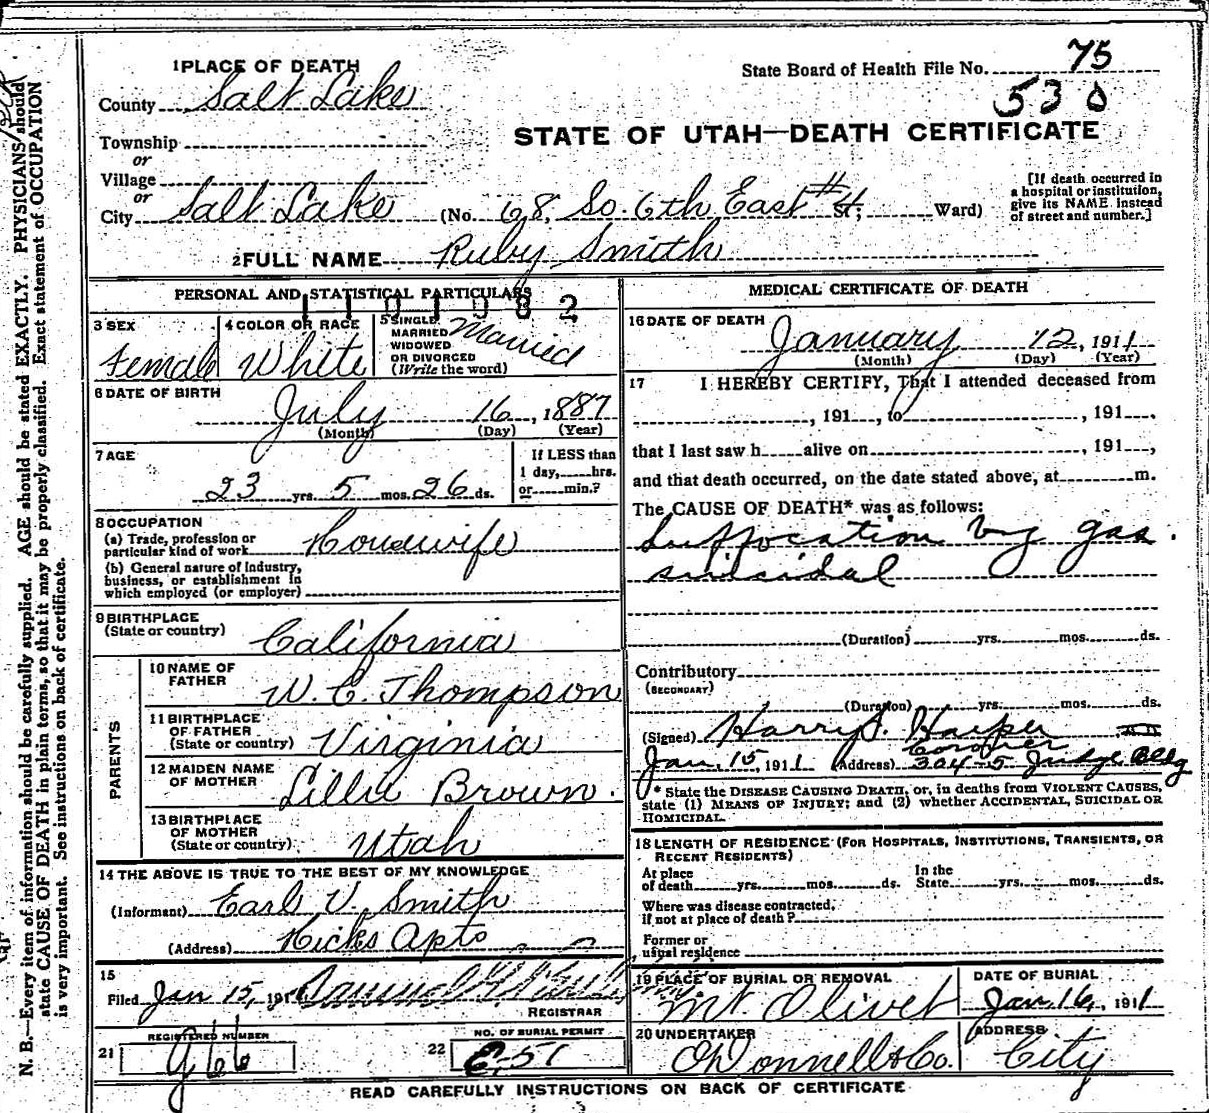 1 PLACE OF DEATH
County Salt Lake
Township
or
Village
or
City Salt Lake (No. 68, So. 6th East #4 St; Ward)
State Board of Health File No. 75
530
STATE OF UTAH—DEATH CERTIFICATE
[If death occurred in
a hospital or institution,
give its NAME instead
of street and number.]
2 FULL NAME Ruby Smith
PERSONAL AND STATISTICAL PARTICULARS
1101982
3 SEX
Female
4 COLOR OR RACE
White
5 SINGLE
MARRIED
WIDOWED
OR DIVORCED
(Write the word)
Married
6 DATE OF BIRTH
July 16, 1887
(Month) (Day) (Year)
7 AGE
23 yrs. 5 mos. 26 ds.
If LESS than
1 day, hrs.
or min.?
8 OCCUPATION
(a) Trade, profession or
particular kind of work Housewife
(b) General nature of Industry,
business, or establishment in
which employed (or employer)
9 BIRTHPLACE
(State or country) California
PARENTS
10 NAME OF
FATHER W. C. Thompson
11 BIRTHPLACE
OF FATHER
(State or country) Virginia
12 MAIDEN NAME
OF MOTHER Lillie Brown.
13 BIRTHPLACE
OF MOTHER
(State or country) Utah
14 THE ABOVE IS TRUE TO THE BEST OF MY KNOWLEDGE
(Informant) Earl V. Smith
(Address) Hicks Apts
15
Filed Jan 15, 191
REGISTRAR
REGISTERED NUMBER
21 966
NO. OF BURIAL PERMIT
22 E-51
MEDICAL CERTIFICATE OF DEATH
16 DATE OF DEATH
January 12, 1911
(Month) (Day) (Year)
17 I HEREBY CERTIFY, That I attended deceased from
, 191 , to , 191 ,
that I last saw h alive on , 191 ,
and that death occurred, on the date stated above, at m.
The CAUSE OF DEATH* was as follows:
Suffocation by gas.
suicidal
(Duration) yrs. mos. ds.
Contributory
(SECONDARY)
(Duration) yrs. mos. ds.
(Signed) Harry S. Harper
Coroner
Jan, 15, 1911 (Address) 304-5 Judge Bldg
* State the DISEASE CAUSING DEATH, or, in deaths from VIOLENT CAUSES,
state (1) MEANS OF INJURY; and (2) whether ACCIDENTAL, SUICIDAL OR
HOMICIDAL.
18 LENGTH OF RESIDENCE (FOR HOSPITALS, INSTITUTIONS, TRANSIENTS, OR
RECENT RESIDENTS)
At place
of death yrs. mos. ds.
In the
State yrs. mos. ds.
Where was disease contracted,
if not at place of death?
Former or
usual residence
19 PLACE OF BURIAL OR REMOVAL
Mt. Olivet
DATE OF BURIAL
Jan. 16, 1911
20 UNDERTAKER
O'Donnell & Co.
ADDRESS
City
READ CAREFULLY INSTRUCTIONS ON BACK OF CERTIFICATE
N. B.—Every item of information should be carefully supplied. AGE should be stated EXACTLY. PHYSICIANS should
state CAUSE OF DEATH in plain terms, so that it may be properly classified. Exact statement of OCCUPATION
is very important. See instructions on back of certificate.